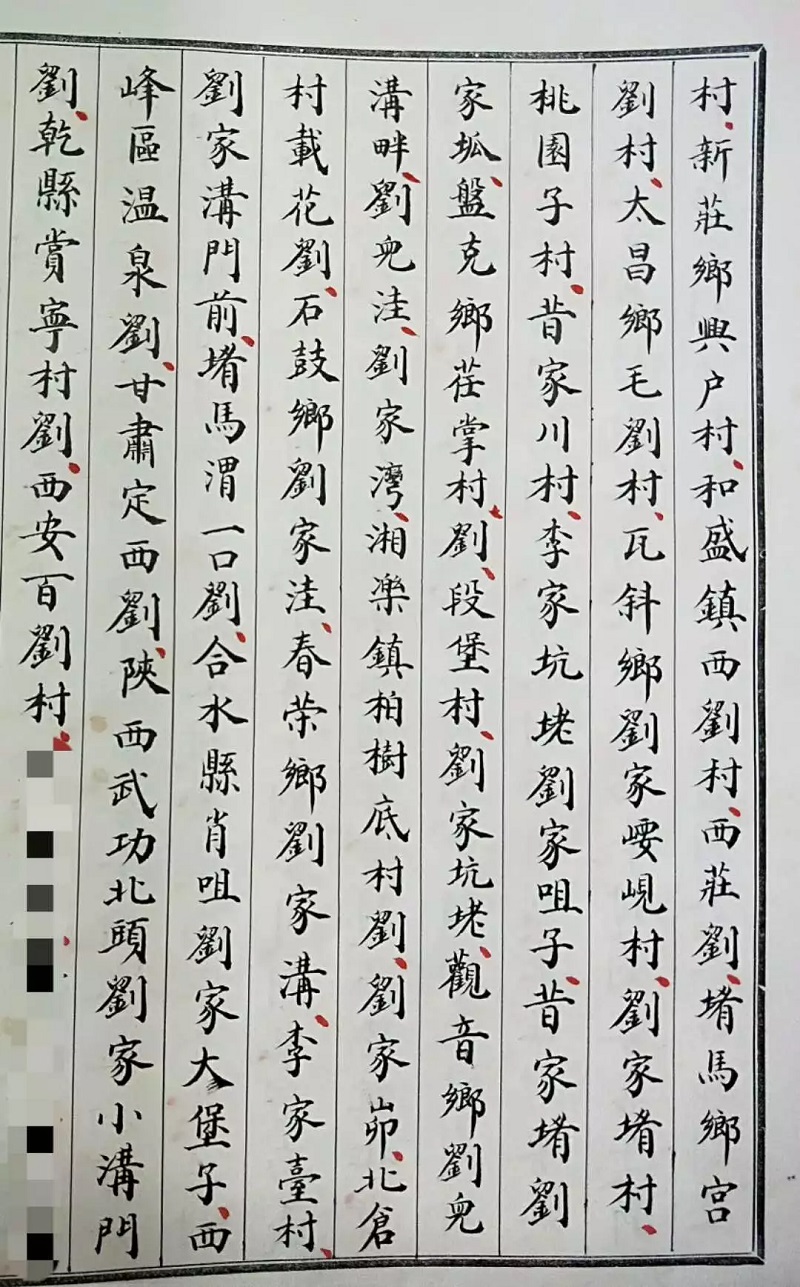 村、新莊鄉興户村、和盛鎮西劉村、西莊劉、堉馬鄉宫
劉村、太昌鄉毛劉村、瓦斜鄉劉家崾峴村、劉家堉村、
桃園子村、昔家川村、李家坑垯劉家咀子、昔家堉劉
家坬、盤克鄉荏掌村、劉、段堡村、劉家坑垯、觀音鄉劉兇
溝畔、劉兇洼、劉家灣、湘樂鎮柏樹底村劉、劉家峁、北倉
村載花劉、石鼓鄉劉家洼、春荣鄉劉家溝、李家臺村、
劉家溝門前、堉馬渭一口劉、合水縣肖咀劉家大堡子、西
峰區温泉劉、甘肅定西劉、陝西武功北頭劉家小溝門
劉、乾縣賞寧村劉、西安百劉村、